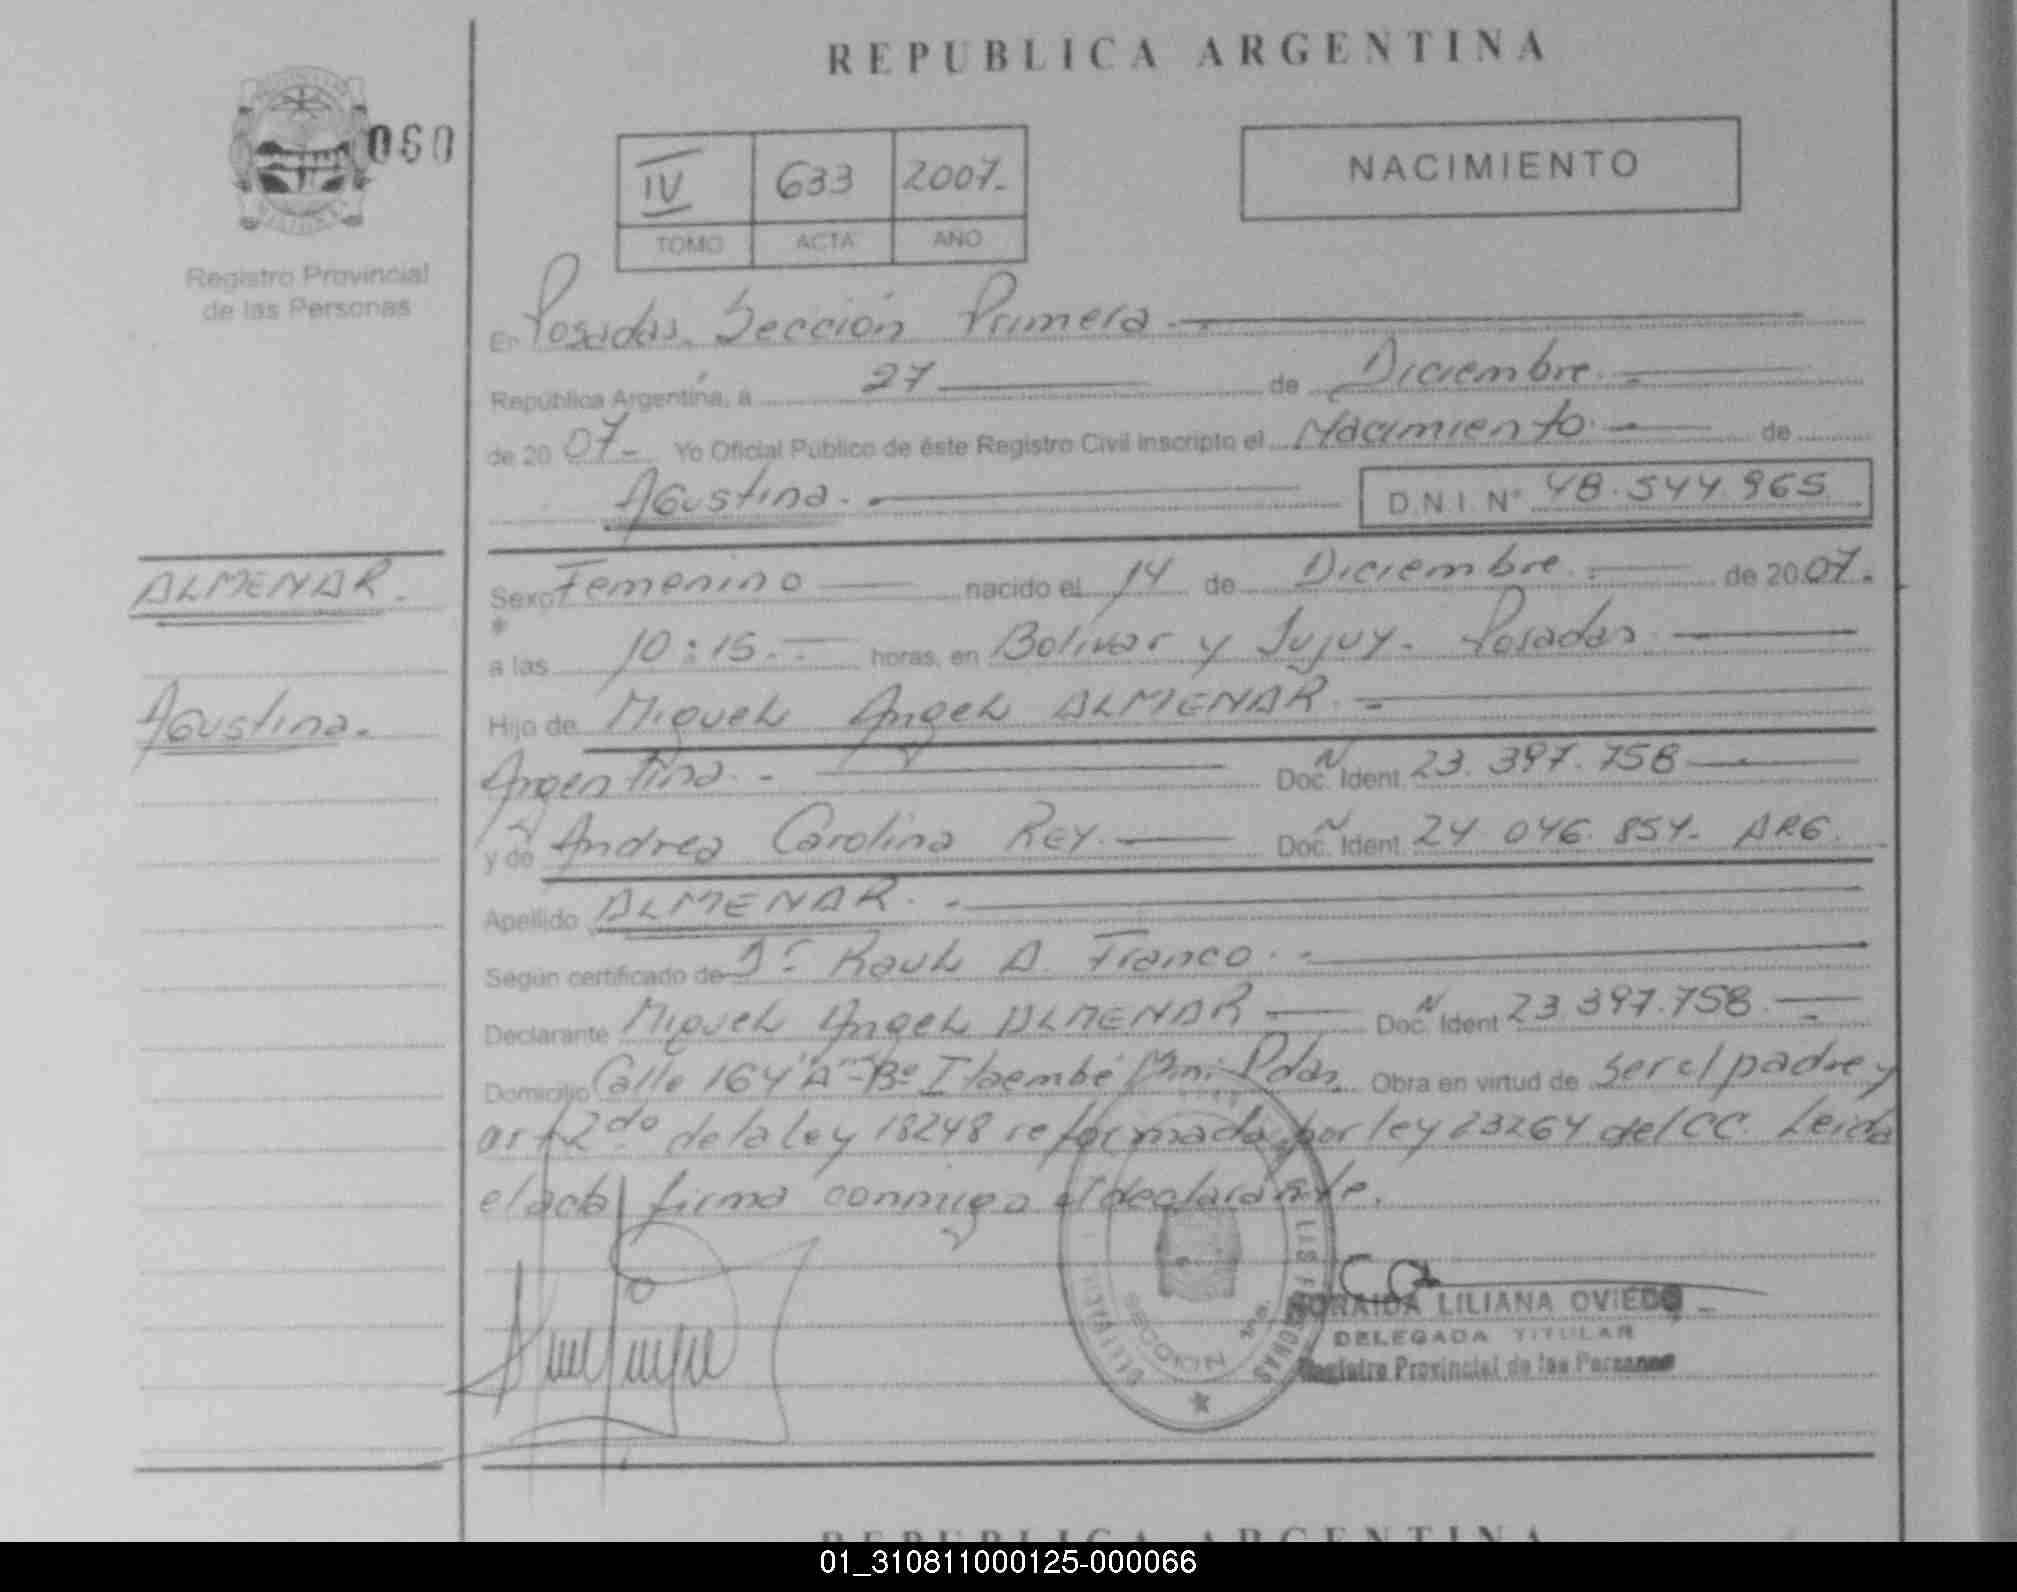 REPUBLICA ARGENTINA
060
IV 633 2007.-
TOMO ACTA AÑO
NACIMIENTO
Registro Provincial
de las Personas
En Posadas. Sección Primera.
República Argentina, a 27 de Diciembre.
de 20 07.- Yo Oficial Público de éste Registro Civil inscripto el Nacimiento. de
Agustina. D.N.I. Nº 48.544.965
ALMENAR.
Agustina.
Sexo Femenino nacido el 14 de Diciembre. de 20 07.
a las 10:15.- horas, en Bolivar y Jujuy. Posadas.
Hijo de Miguel Angel ALMENAR.-
Argentina.- Doc. Ident. 23.397.758
y de Andrea Carolina REY. Doc. Ident. 24 046.854- ARG.
Apellido ALMENAR.-
Según certificado de Raul A. Franco.-
Declarante Miguel Angel ALMENAR Doc. Ident 23 397.758.-
Domicilio Calle 164 "A"-Bº Itaembé Mini Pdas. Obra en virtud de ser el padre y
art 2do de la ley 18248 reformada por ley 23264 del CC. Leida
el acta firma conmigo el declarante.
SECCION
LILIANA OVIEDO
DELEGADA TITULAR
Registro Provincial de las Personas
REPUBLICA ARGENTINA
01_310811000125-000066